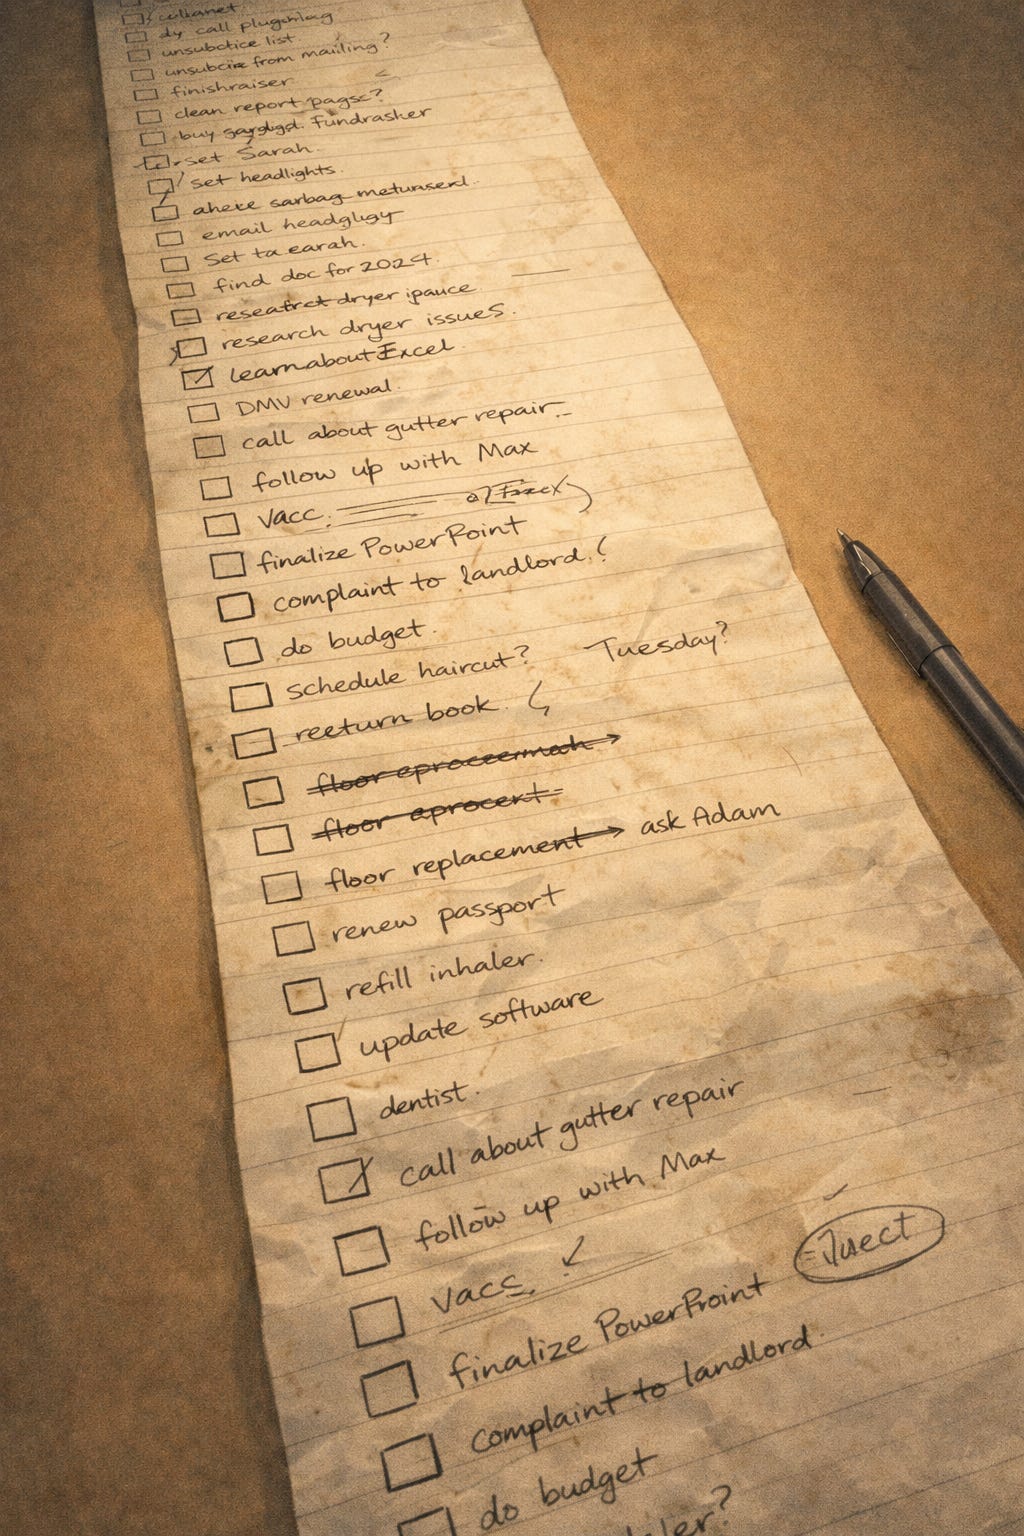 dy call
unsubctice list
unsubcire from mailing?
finishraiser
clean report pagsc?
buy Fundrasker
set Sarah.
set headlights.
ahexe sarbag metunserd.
email headglugy
Set ta earah.
find doc for 2024.
reseatrct dryer ipauce
research dryer issues.
learn about Excel.
DMV renewal.
call about gutter repair.
follow up with Max
Vacc.
finalize PowerPoint
complaint to landlord.
do budget.
schedule haircut? Tuesday?
reeturn book.
floor
floor aprocext
floor replacement → ask Adam
renew passport
refill inhaler.
update software
dentist.
call about gutter repair
follow up with Max
vacc.
finalize PowerProint
complaint to landlord.
do budget